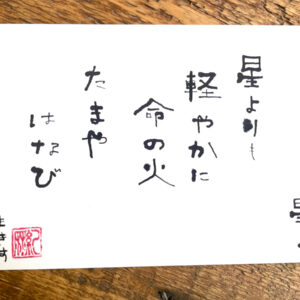 星よりも
軽やかに
命の火
たまや
はなび